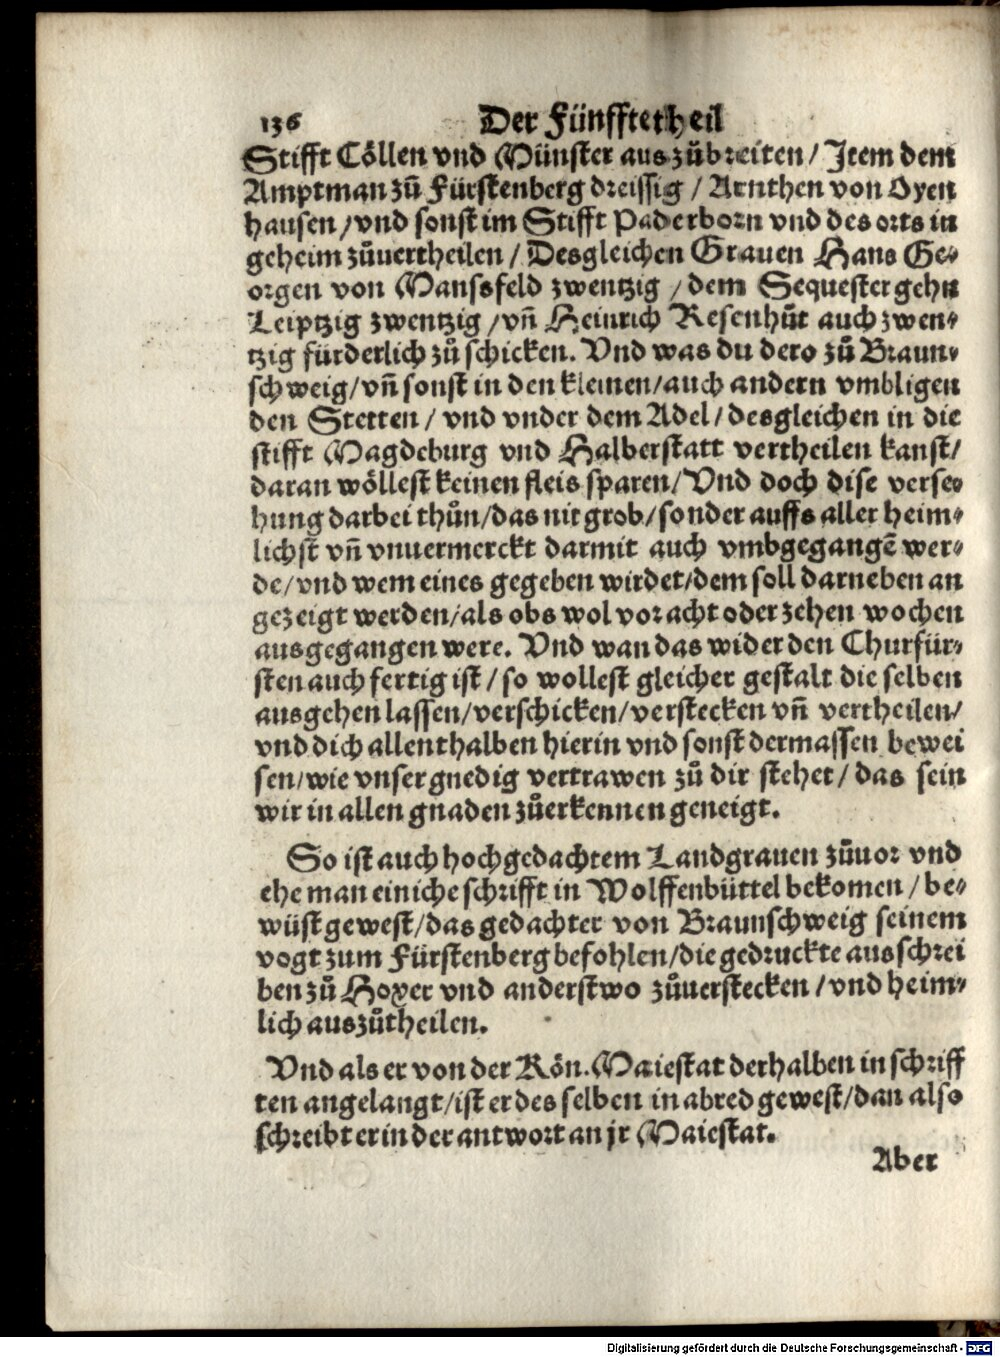 136 Der Fünfftetheil
Stifft Cöllen vnd Münster auszůbreiten / Item dem
Amptman zů Fürstenberg dreissig / Arnthen von Oyen
hausen / vnd sonst im Stifft Paderborn vnd des orts in
geheim zůuertheilen / Desgleichen Grauen Hans Ge⸗
orgen von Mansfeld zwentzig / dem Sequester gehn
Leiptzig zwentzig / vn̄ Heinrich Resenhůt auch zwen⸗
tzig fürderlich zů schicken. Vnd was du dero zů Braun⸗
schweig / vn̄ sonst in den kleinen / auch andern vmbligen
den Stetten / vnd vnder dem Adel / desgleichen in die
stifft Magdeburg vnd Halberstatt vertheilen kanst /
daran wöllest keinen fleis sparen / Vnd doch dise verse⸗
hung darbei thůn / das nit grob / sonder auffs aller heim⸗
lichst vn̄ vnuermerckt darmit auch vmbgegangē wer⸗
de / vnd wem eines gegeben wirdet / dem soll darneben an
gezeigt werden / als obs wol vor acht oder zehen wochen
ausgegangen were. Vnd wan das wider den Churfür⸗
sten auch fertig ist / so wollest gleicher gestalt die selben
ausgehen lassen / verschicken / verstecken vn̄ vertheilen /
vnd dich allenthalben hierin vnd sonst dermassen bewei
sen / wie vnser gnedig vertrawen zů dir stehet / das sein
wir in allen gnaden zůerkennen geneigt.
So ist auch hochgedachtem Landgrauen zůuor vnd
ehe man einiche schrifft in Wolffenbüttel bekomen / be⸗
wüst gewest / das gedachter von Braunschweig seinem
vogt zum Fürstenberg befohlen / die gedruckte ausschrei
ben zů Hoxer vnd anderstwo zůuerstecken / vnd heim⸗
lich auszůtheilen.
Vnd als er von der Kön. Maiestat derhalben in schriff
ten angelangt / ist er des selben in abred gewest / dan also
schreibt er in der antwort an jr Maiestat.
Aber
Digitalisierung gefördert durch die Deutsche Forschungsgemeinschaft - DFG